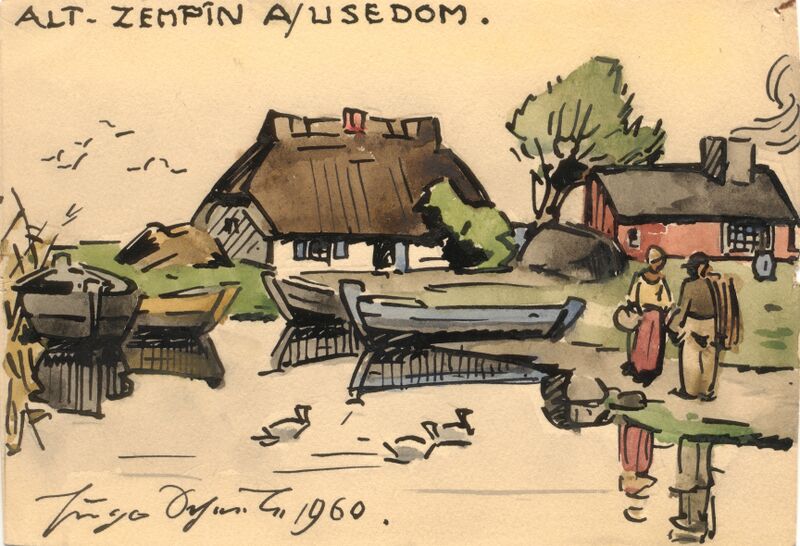 ALT-ZEMPIN A/USEDOM.
Hugo 1960.